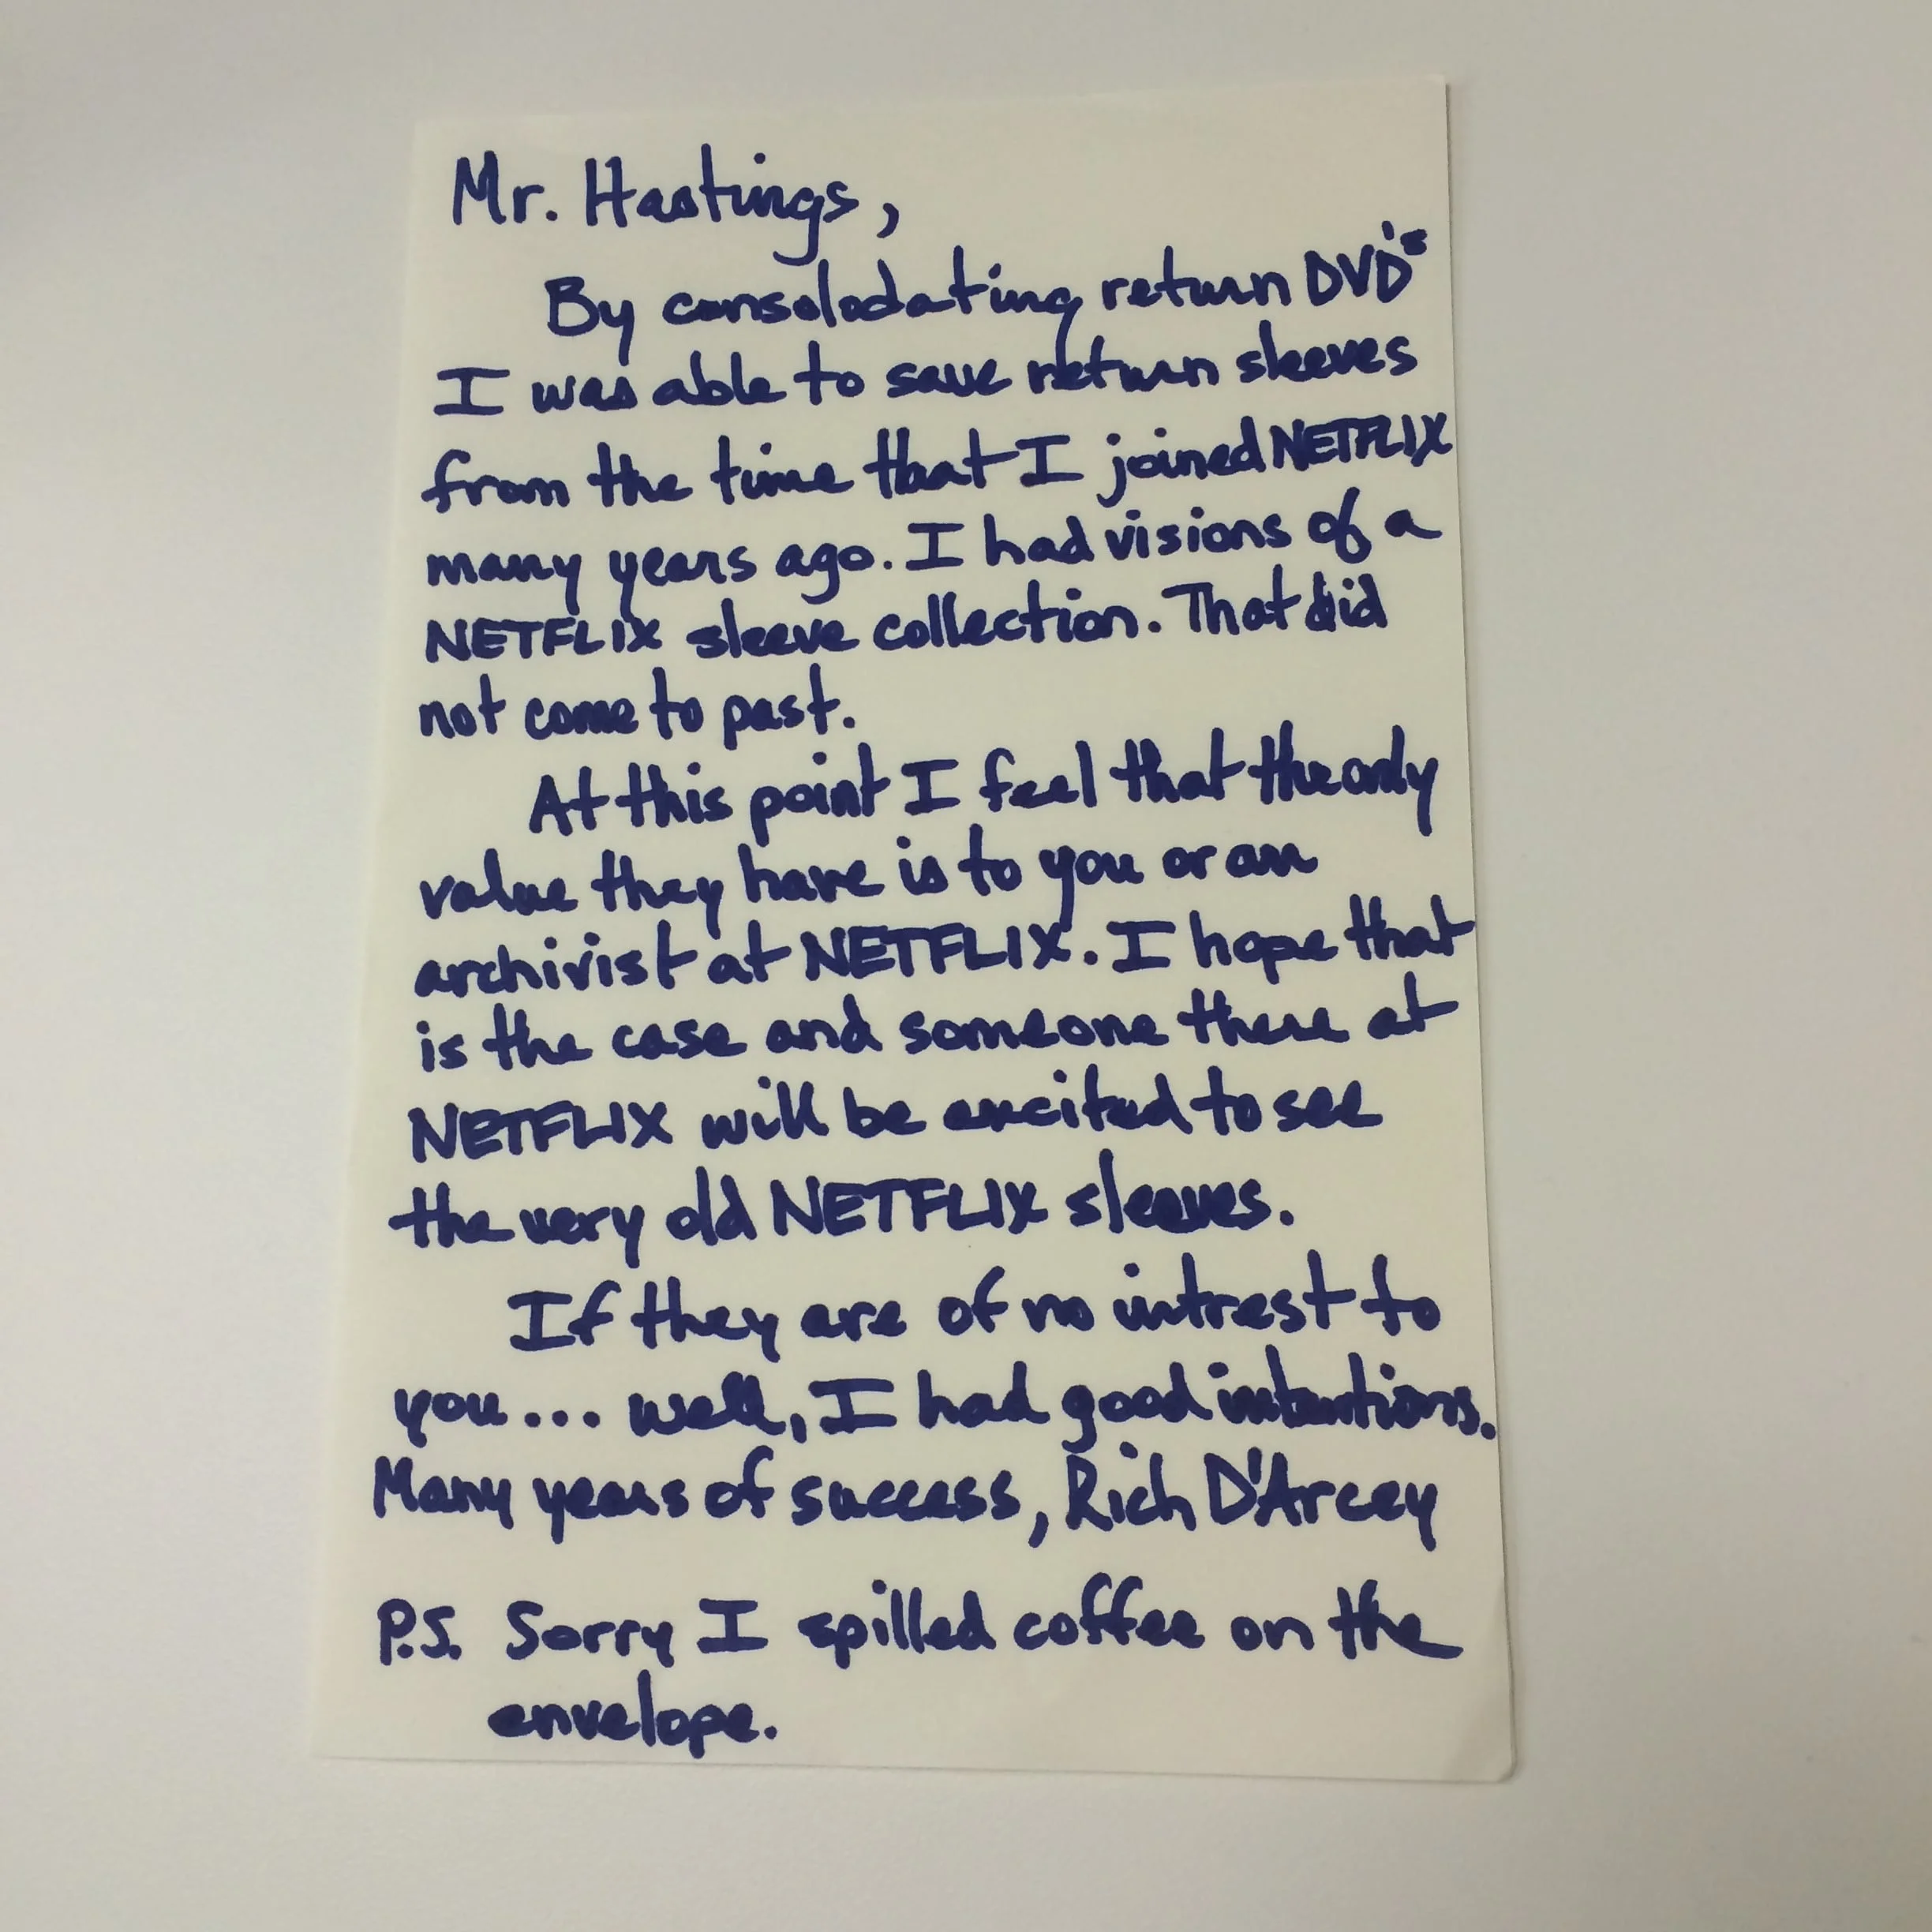 Mr. Hastings,
By consolodating return DVD's
I was able to save return sleeves
from the time that I joined NETFLIX
many years ago. I had visions of a
NETFLIX sleeve collection. That did
not come to past.
At this point I feel that the only
value they have is to you or an
archivist at NETFLIX. I hope that
is the case and someone there at
NETFLIX will be excited to see
the very old NETFLIX sleeves.
If they are of no intrest to
you... well, I had good intentions.
Many years of success, Rich D'Arcey
P.S. Sorry I spilled coffee on the
envelope.